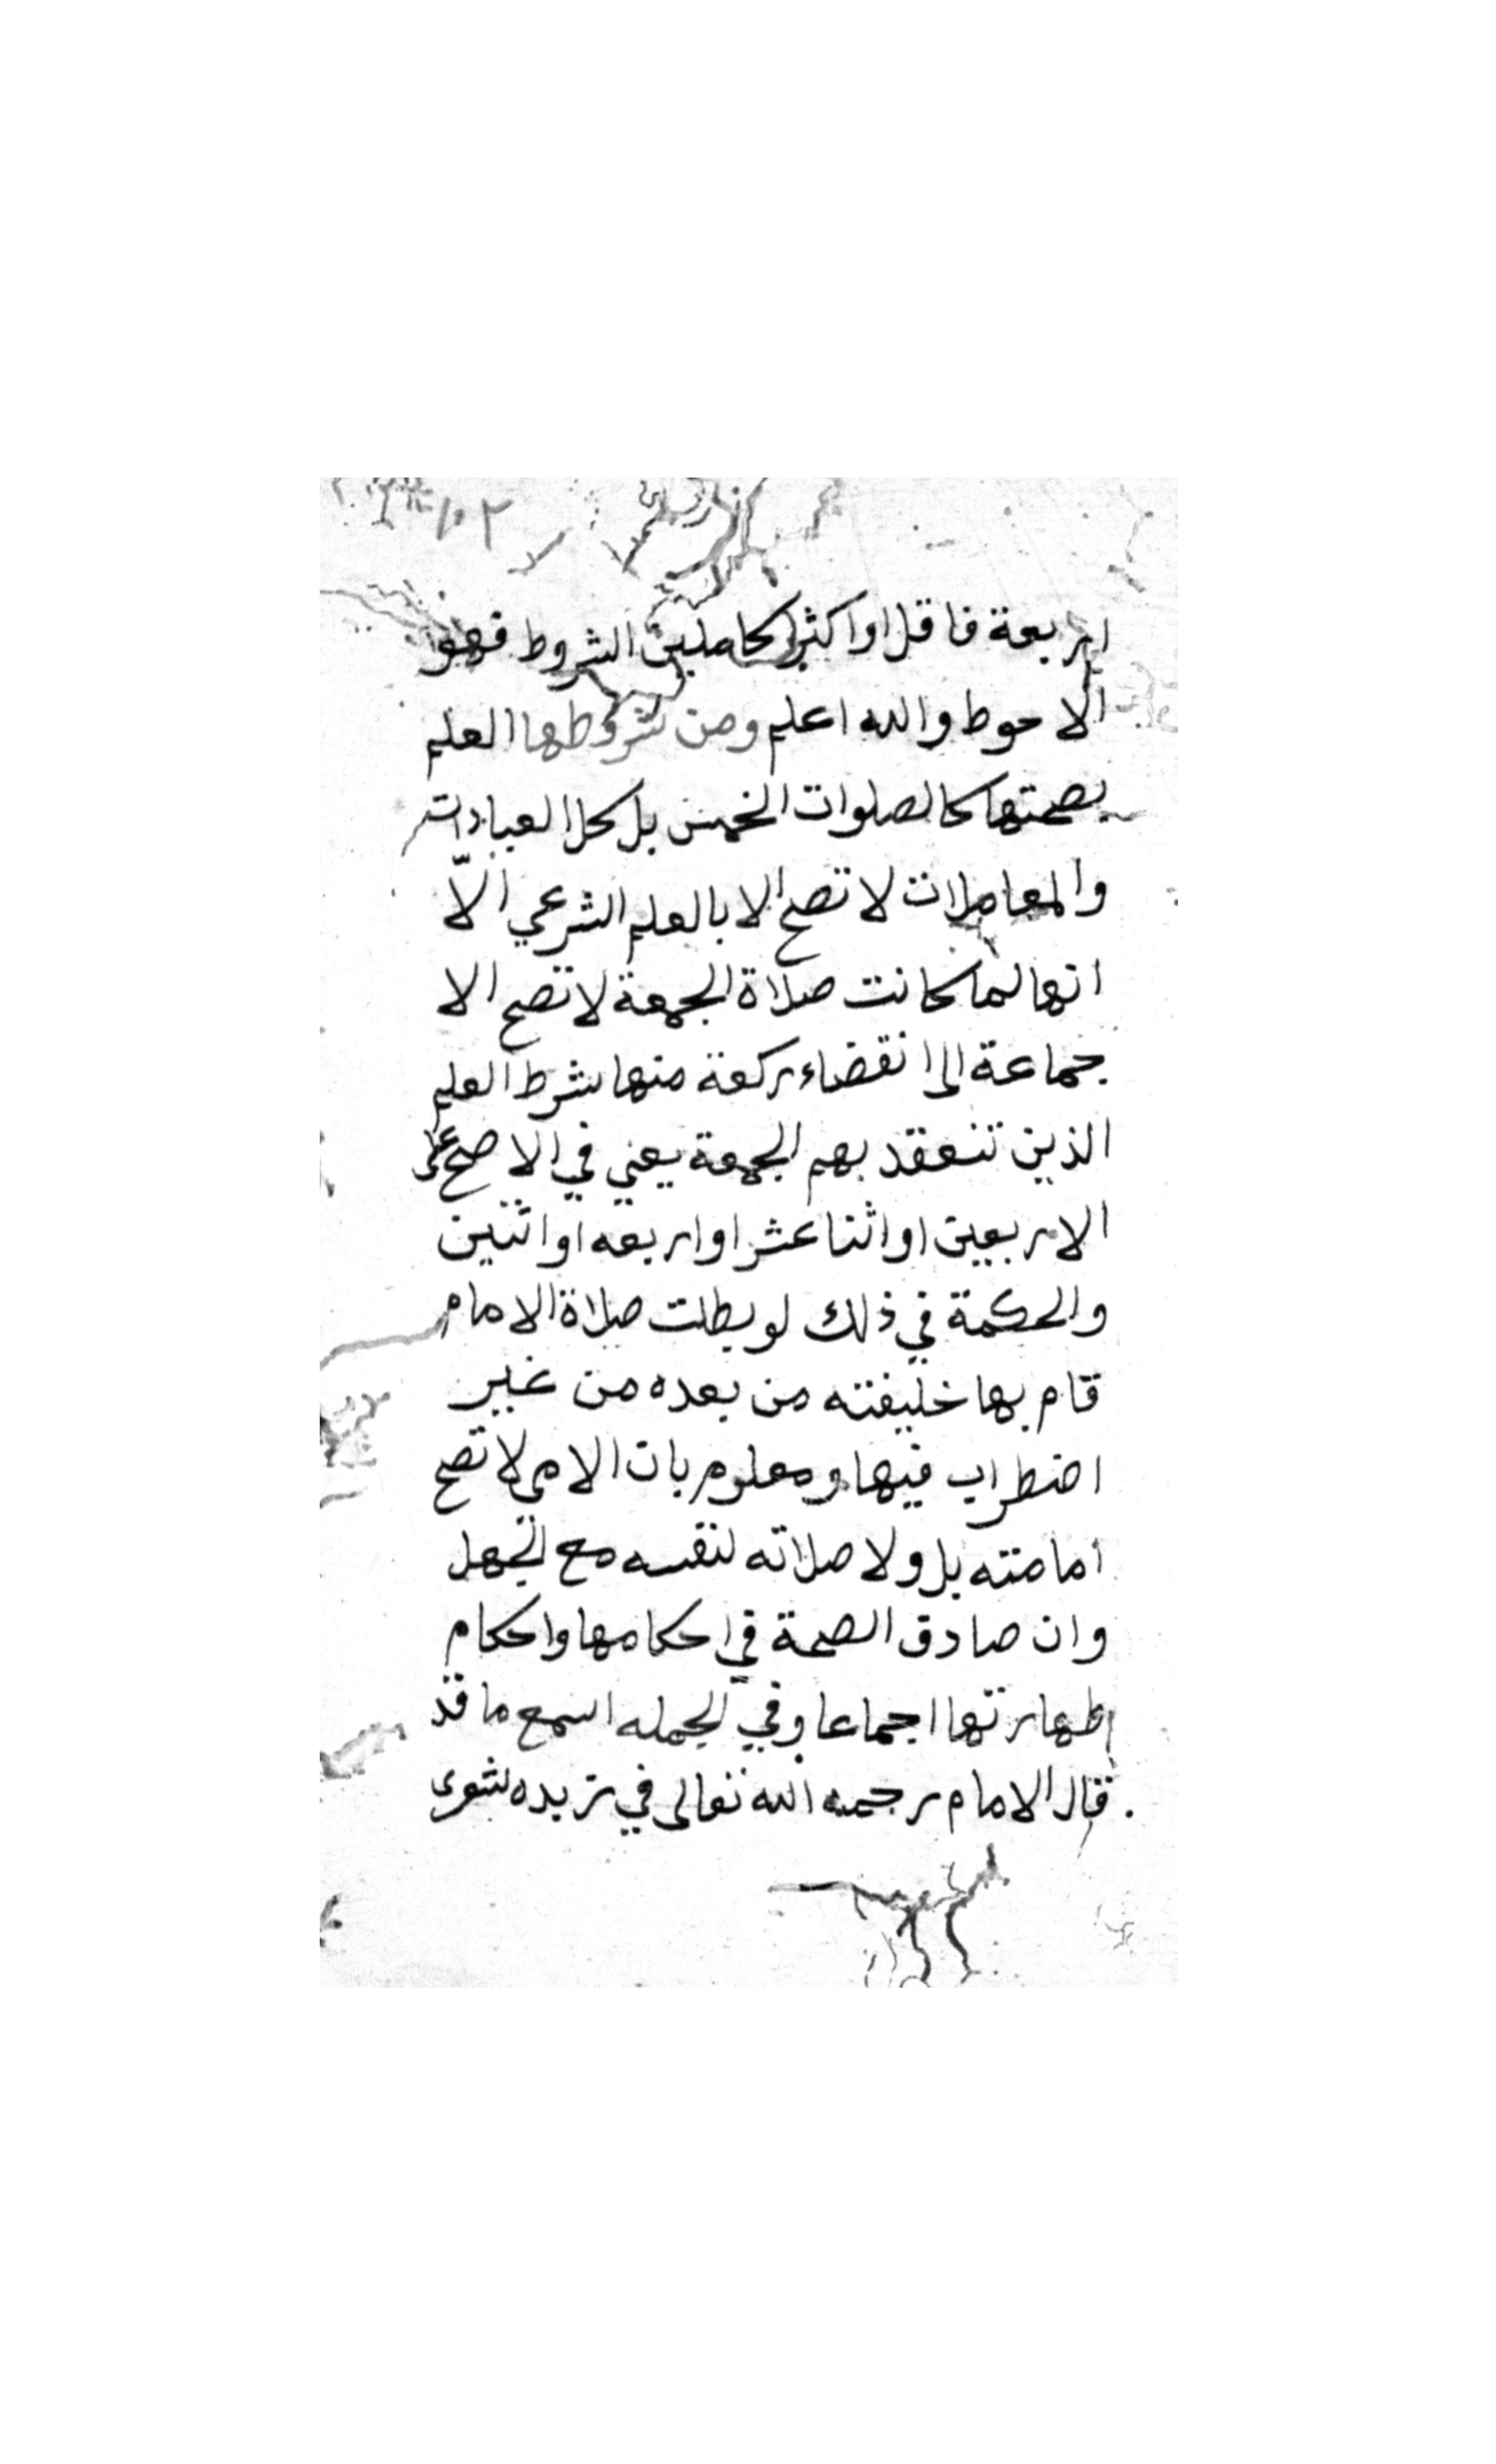 ١٠٢
اربعة فاقل او اكثر كاملين الشروط فهو
الاحوط والله اعلم ومن شروطها العلم
بصحتها كالصلوات الخمس بل كل العبادات
والمعاملات لا تصح الا بالعلم الشرعي الّا
انها لما كانت صلاة الجمعة لا تصح الا
جماعة الى انقضاء ركعة منها شرط العلم
الذين تنعقد بهم الجمعة يعني في الاصح على
الاربعين او اثنا عشر او اربعه او اثنين
والحكمة في ذلك لو بطلت صلاة الامام
قام بها خليفته من بعده من غير
اضطراب فيها ومعلوم بان الامي لا تصح
امامته بل ولا صلاته لنفسه مع الجهل
وان صادق الصحة في احكامها واحكام
طهارتها اجماعا وفي الجمله اسمع ما قد
قال الامام رحمه الله تعالى في زبده شعرى